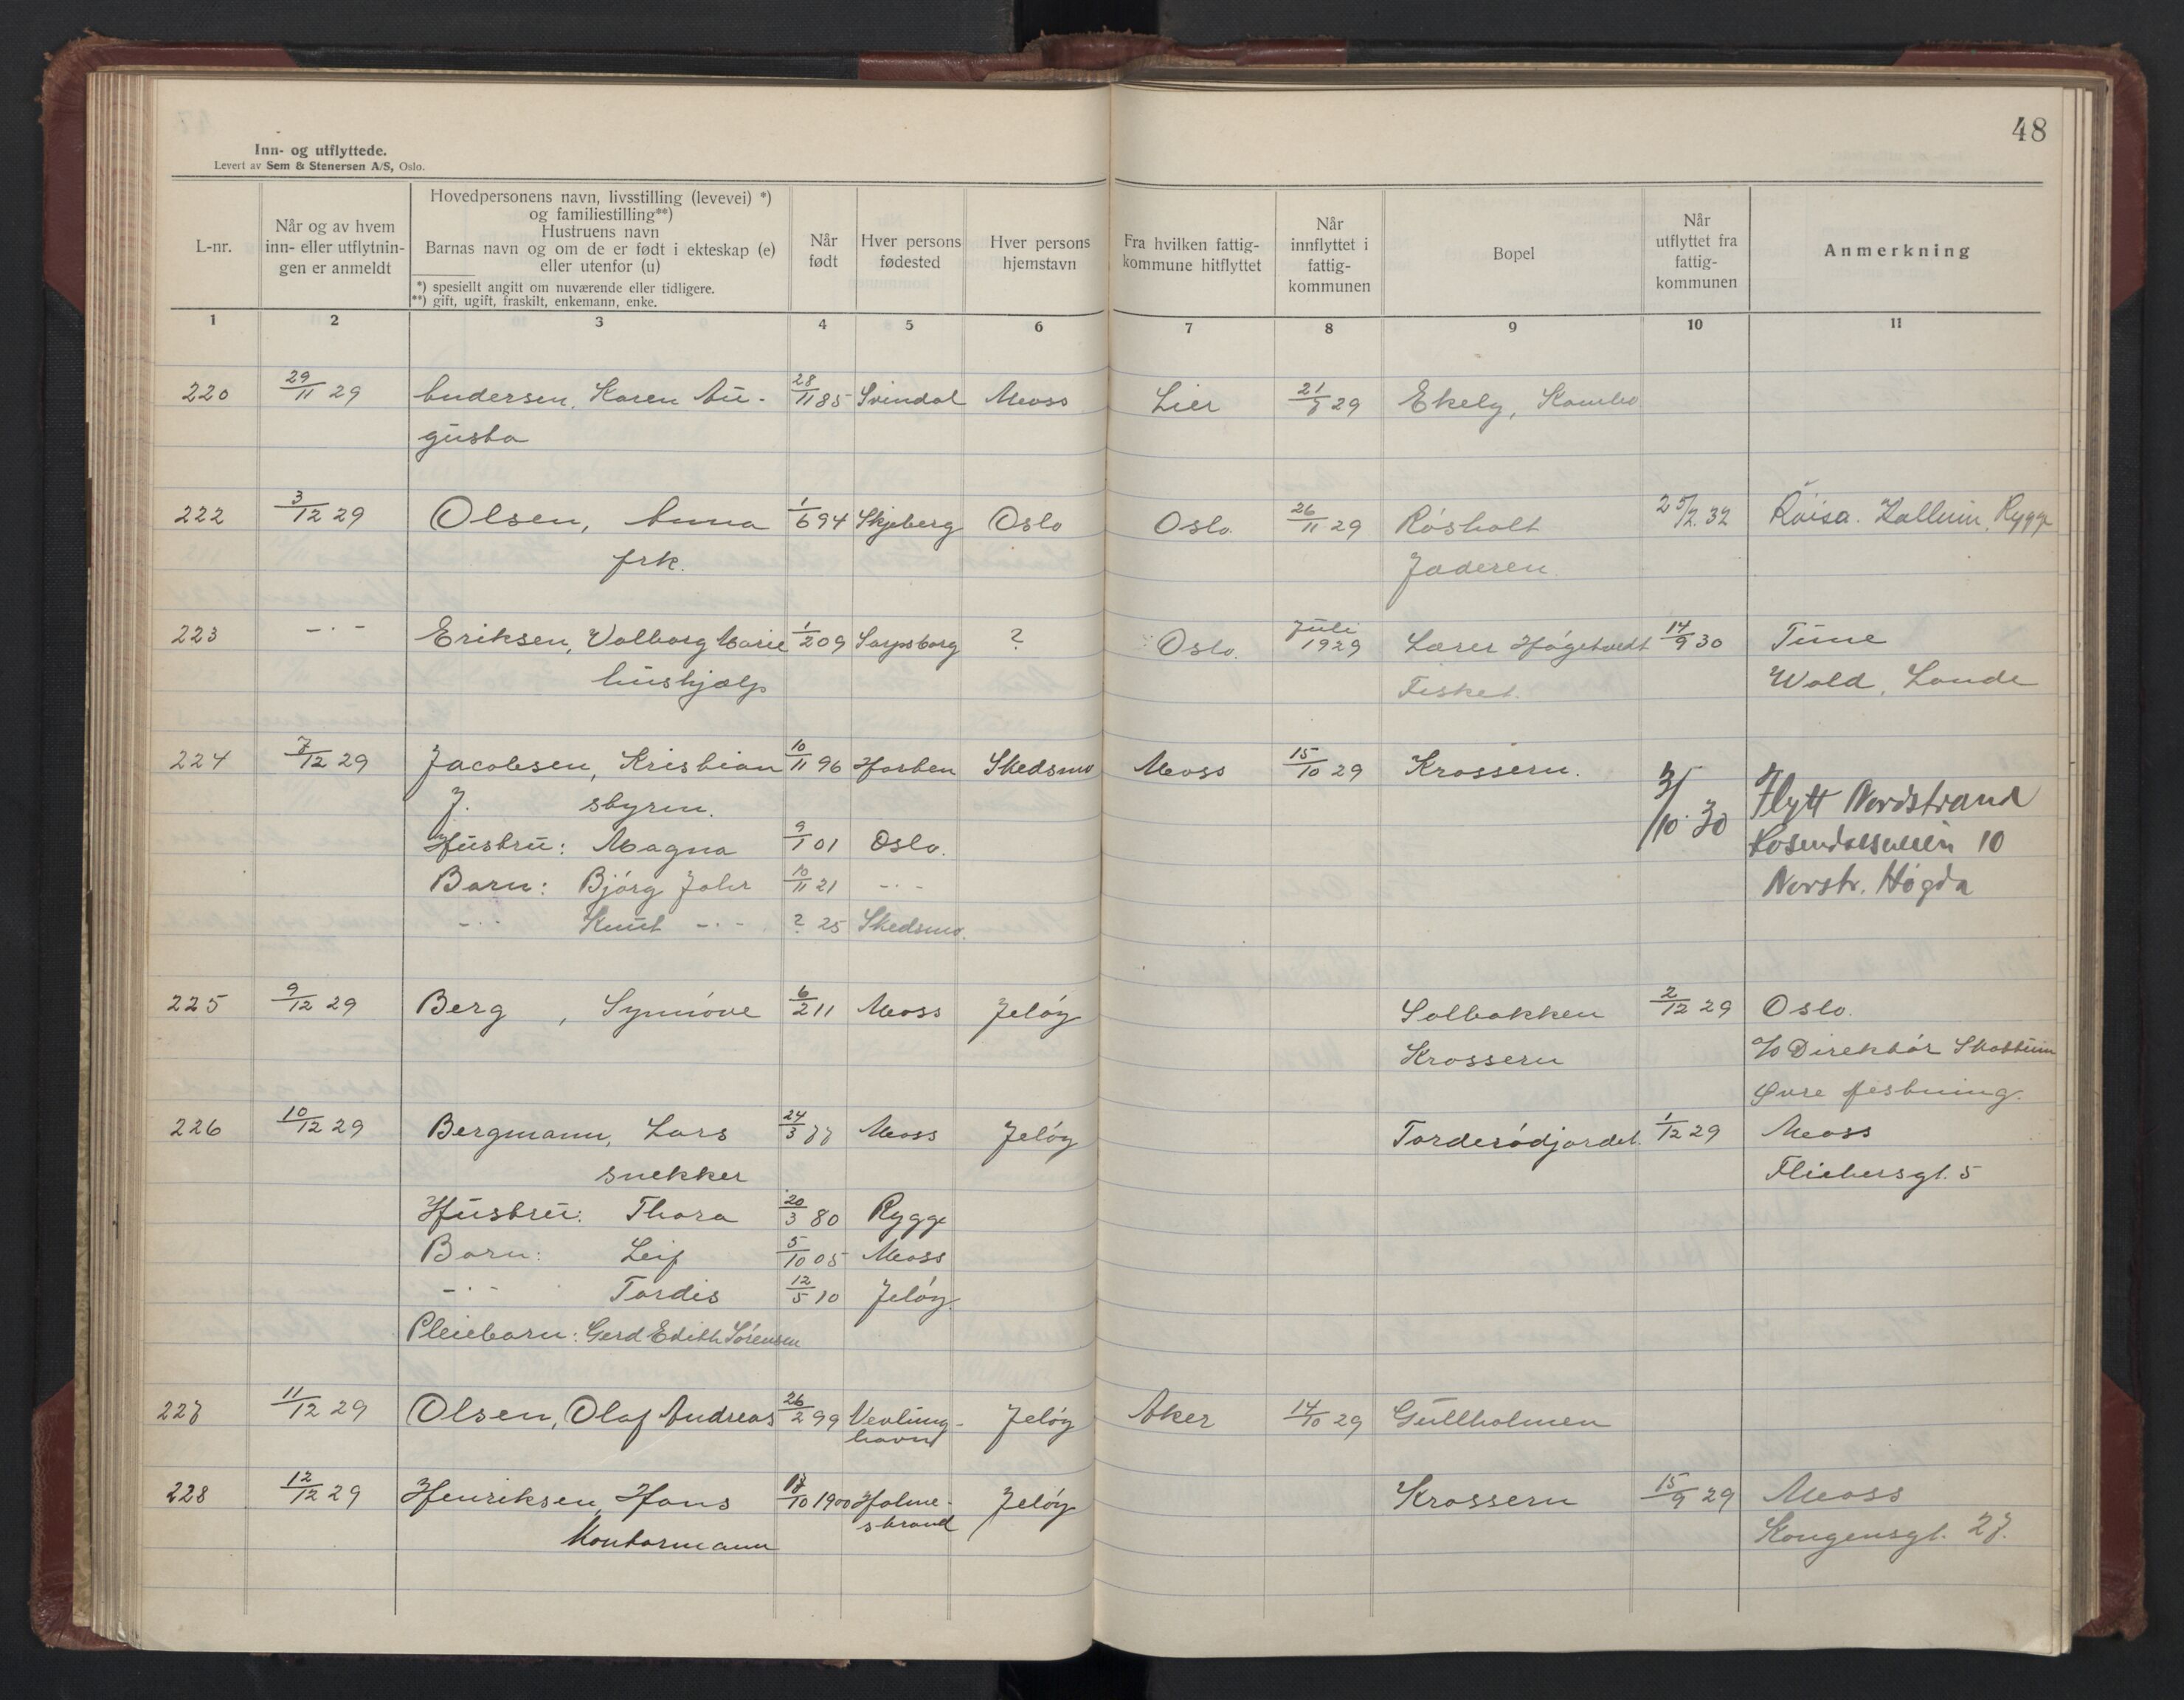 48
Inn- og utflyttede.
Levert av Sem & Stenersen A/S, Oslo.
L-nr.
Når og av hvem inn- eller utflytnin-gen er anmeldt
Hovedpersonens navn, livsstilling (levevei) *)
og familiestilling**)
Hustruens navn
Barnas navn og om de er født i ekteskap (e)
eller utenfor (u)
*) spesiellt angitt om nuværende eller tidligere.
**) gift, ugift, fraskilt, enkemann, enke.
Når født
Hver persons fødested
Hver persons hjemstavn
Fra hvilken fattig-kommune hitflyttet
Når innflyttet i fattig-kommunen
Bopel
Når utflyttet fra fattig-kommunen
Anmerkning
1 2 3 4 5 6 7 8 9 10 11
220 29/11 29 Andersen, Karen Au- 28/11 85 Svindal Moss Lier 29 Ekely, Kambo
gusta
222 3/12 29 Olsen, Anna 1/6 94 Skjeberg Oslo Oslo. 26/11 29 Råsholt 25/2. 32 Kallum, Rygge
frk. Jaderen.
223 -·- Eriksen, Valborg Marie 1/2 09 Sarpsborg ? Oslo. Juli 1929 Lærer Høgetvedt 14/9 30 Tune
hushjælp Fisket. Wold, Lande
224 7/12 29 Jacobsen, Kristian 10/11 96 Horten Skedsmo Moss 15/10 29 Krossern.
J. styrm. 3/10. 30 Flytt Nordstrand
Hustru: Magna 9/1 01 Oslo. Rosendalsveien 10
Barn: Bjørg Johr 10/11 21 -·- Norstr. Høgda
-·- Knut -·- ? 25 Skedsmo.
225 9/12 29 Berg, Synnøve 6/2 11 Moss Jeløy Solbakken 2/12 29 Oslo.
Krossern c/o Direktør Skottum
Øvre festning.
226 10/12 29 Bergmann, Lars 24/3 77 Moss Jeløy Torderødjordet. 1/12 29 Moss
snekker Fliebersgt. 5
Hustru: Thora 20/3 80 Rygge
Barn: Leif 5/10 05 Moss
-·- Tordis 12/5 10 Jeløy.
Pleiebarn: Gerd Edith Sørensen
227 11/12 29 Olsen, Olaf Andreas 26/2 99 Vevling- Jeløy Aker 14/10 29 Gullholmen
havn
228 12/12 29 Henriksen, Hans 17/10 1900 Holme- Jeløy Krossern 15/9 29 Moss
strand Kongensgt. 27.
Kontormann